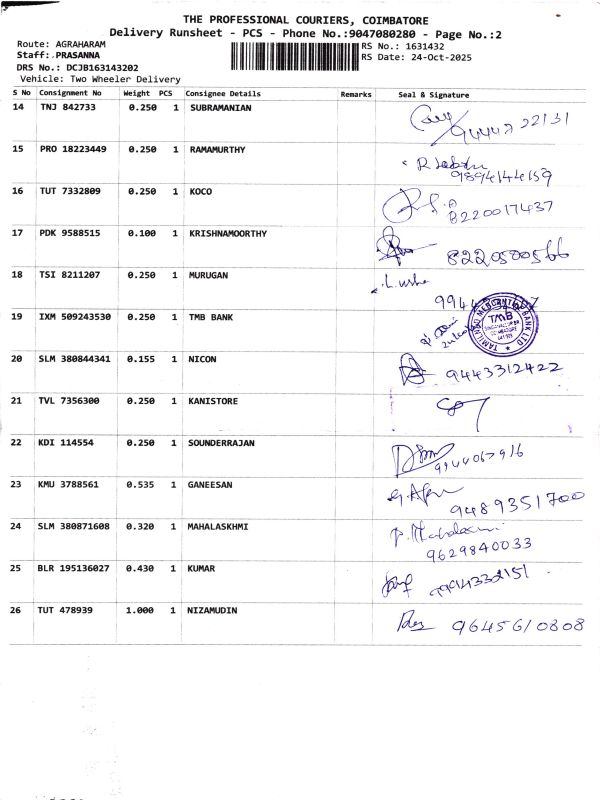 THE PROFESSIONAL COURIERS, COIMBATORE
Delivery Runsheet - PCS - Phone No.:9047080280 - Page No.:2
Route: AGRAHARAM RS No.: 1631432
Staff: PRASANNA RS Date: 24-Oct-2025
DRS No.: DCJB163143202
Vehicle: Two Wheeler Delivery
S No Consignment No Weight PCS Consignee Details Remarks Seal & Signature
14 TNJ 842733 0.250 1 SUBRAMANIAN
15 PRO 18223449 0.250 1 RAMAMURTHY
9894144159
16 TUT 7332809 0.250 1 KOCO
8220017437
17 PDK 9588515 0.100 1 KRISHNAMOORTHY
8220580566
18 TSI 8211207 0.250 1 MURUGAN
L. usha
19 IXM 509243530 0.250 1 TMB BANK
TAMILNAD MERCANTILE BANK LTD
TMB
20 SLM 380844341 0.155 1 NICON
9443312422
21 TVL 7356300 0.250 1 KANISTORE
22 KDI 114554 0.250 1 SOUNDERRAJAN
9144067916
23 KMU 3788561 0.535 1 GANEESAN
9489351700
24 SLM 380871608 0.320 1 MAHALASKHMI
9629840033
25 BLR 195136027 0.430 1 KUMAR
26 TUT 478939 1.000 1 NIZAMUDIN
9645610808